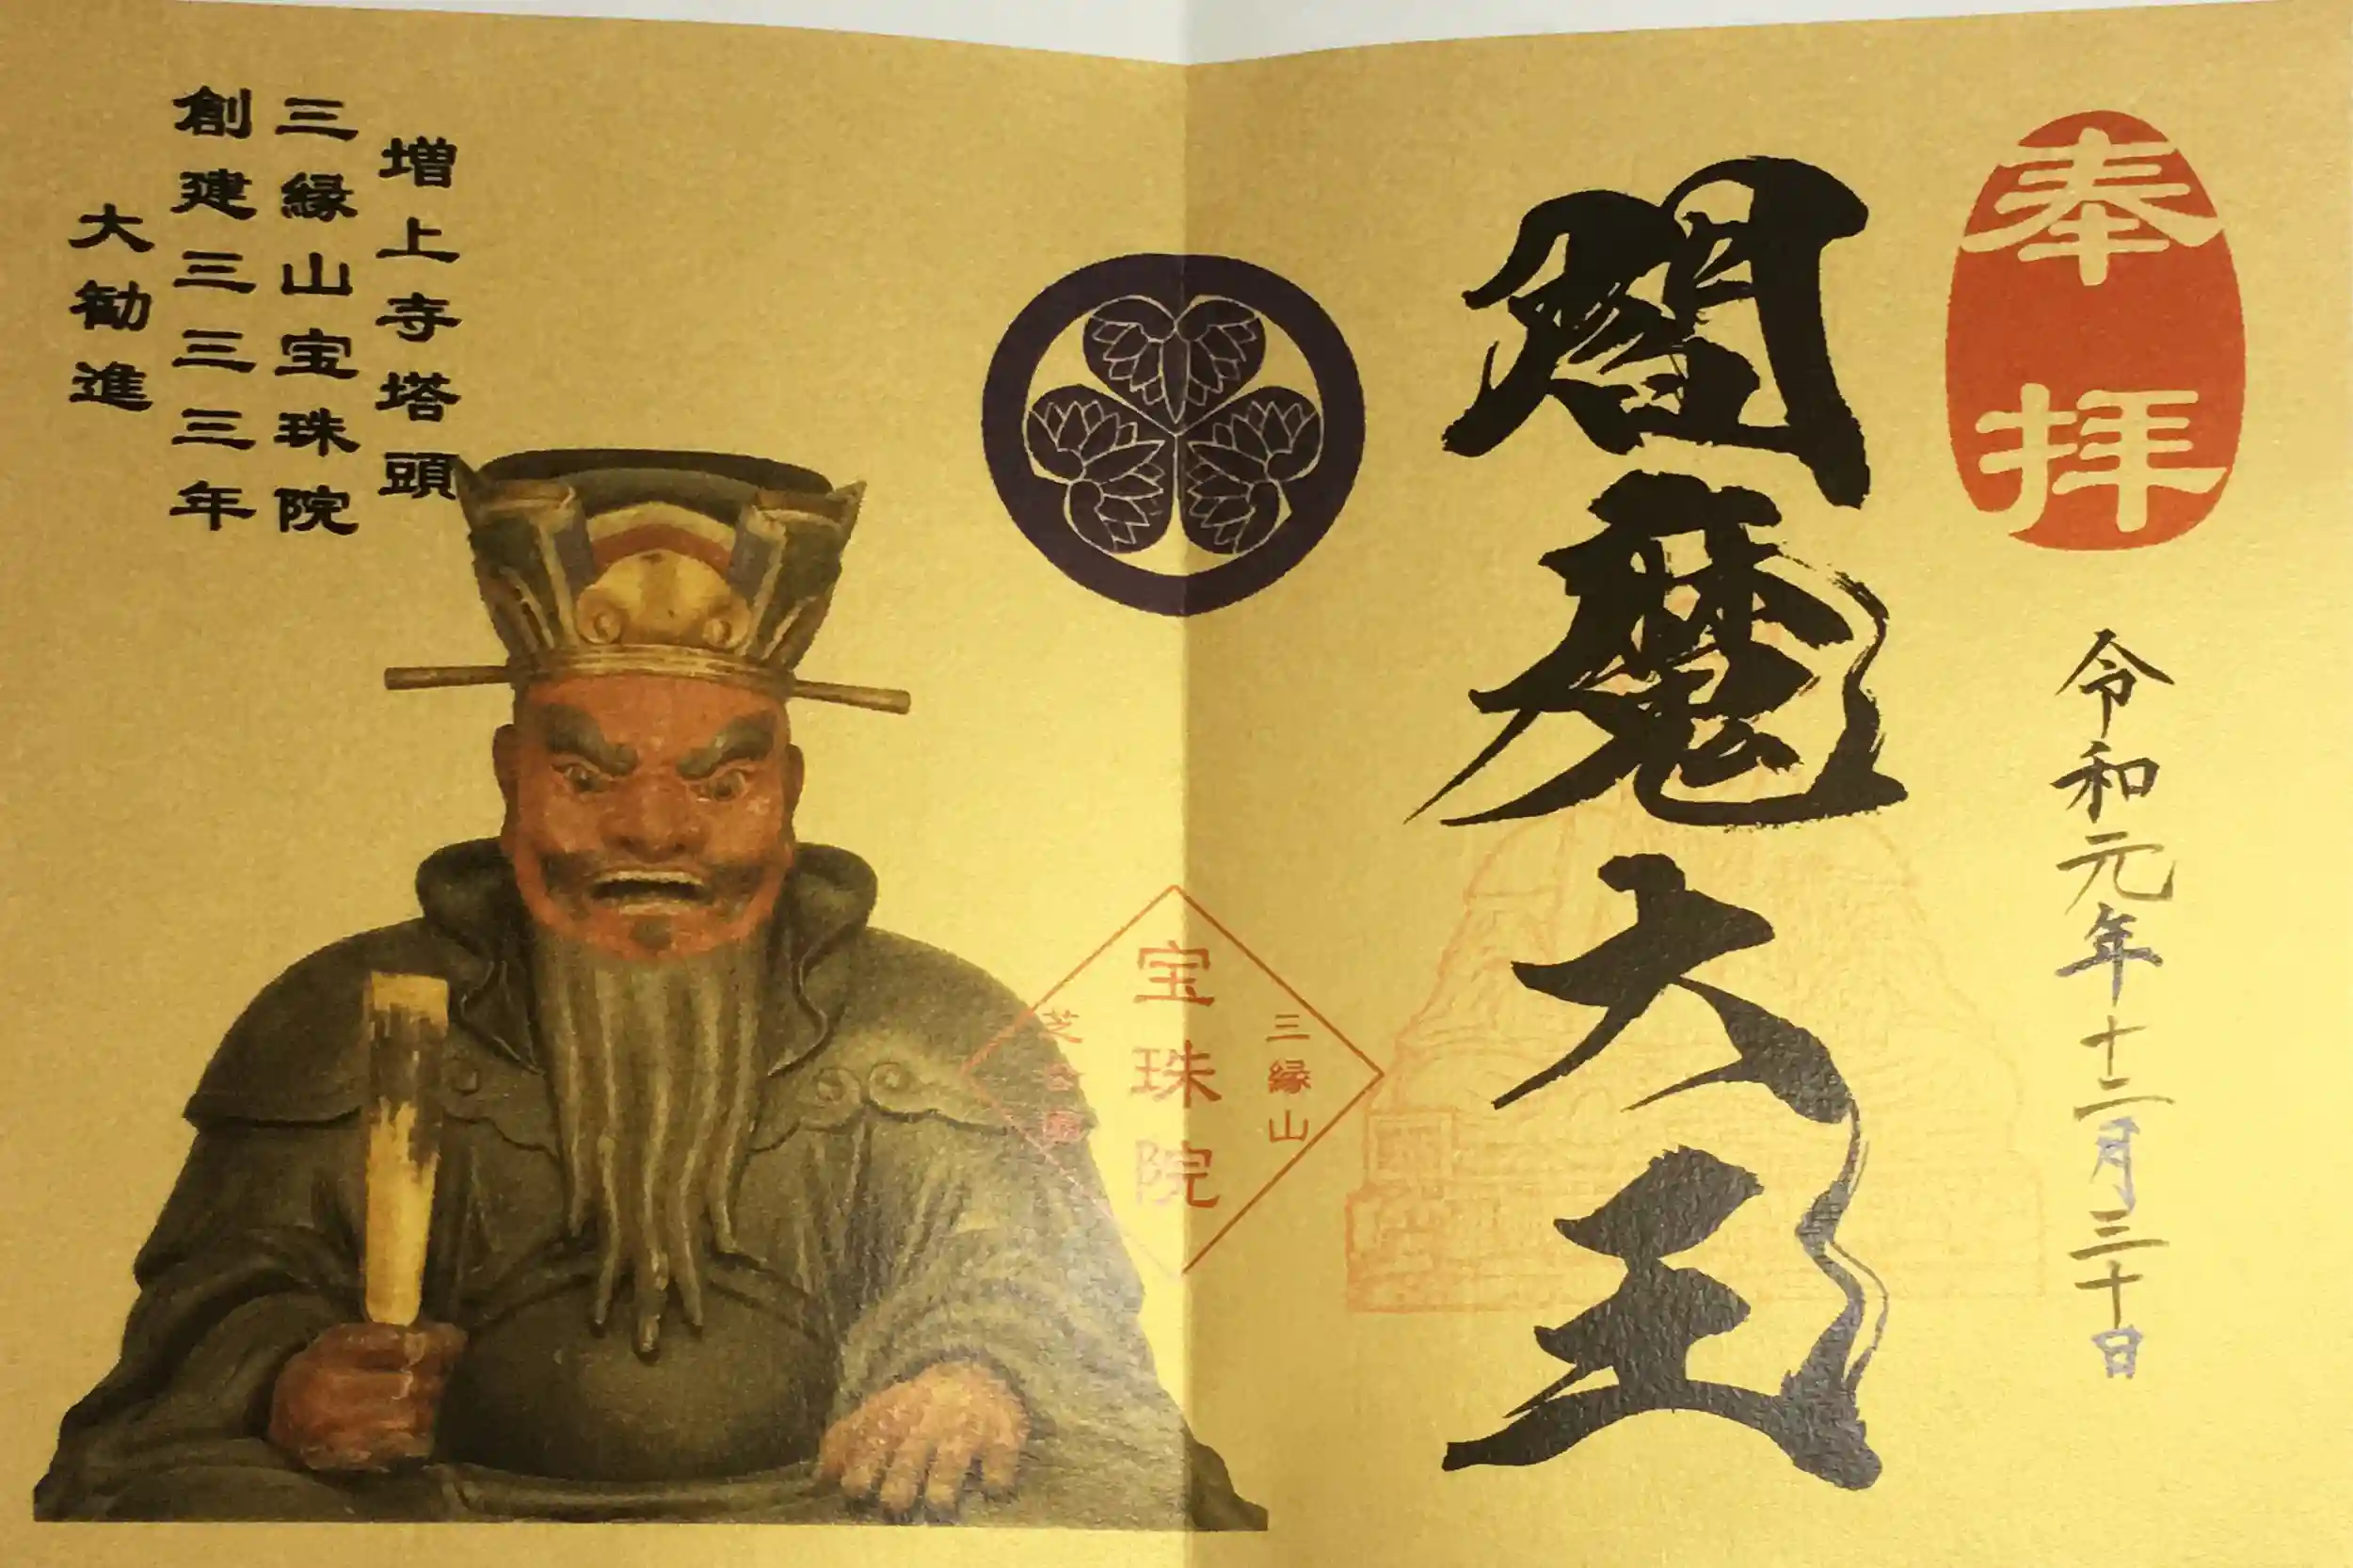 奉拝
令和元年十二月三十日
閻魔大王
三縁山
宝珠院
芝公園
増上寺塔頭
三縁山宝珠院
創建三三三年
大勧進